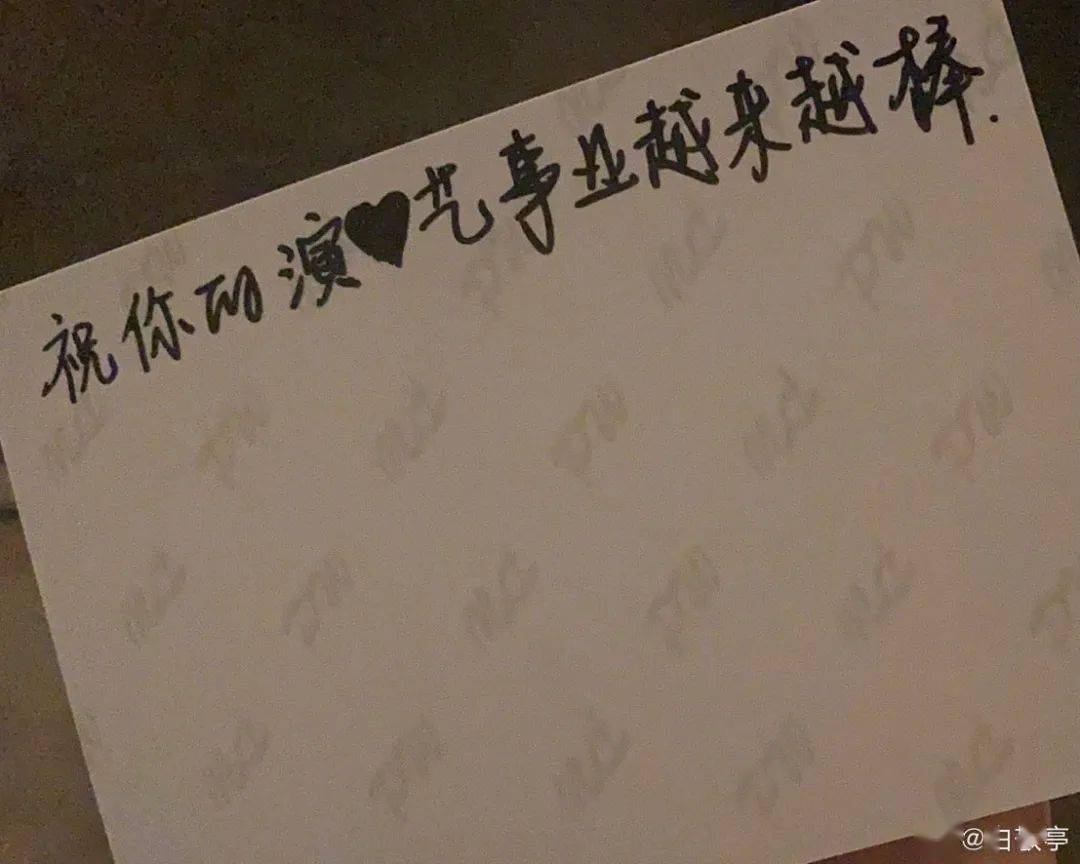 祝你的演♥艺事业越来越棒.